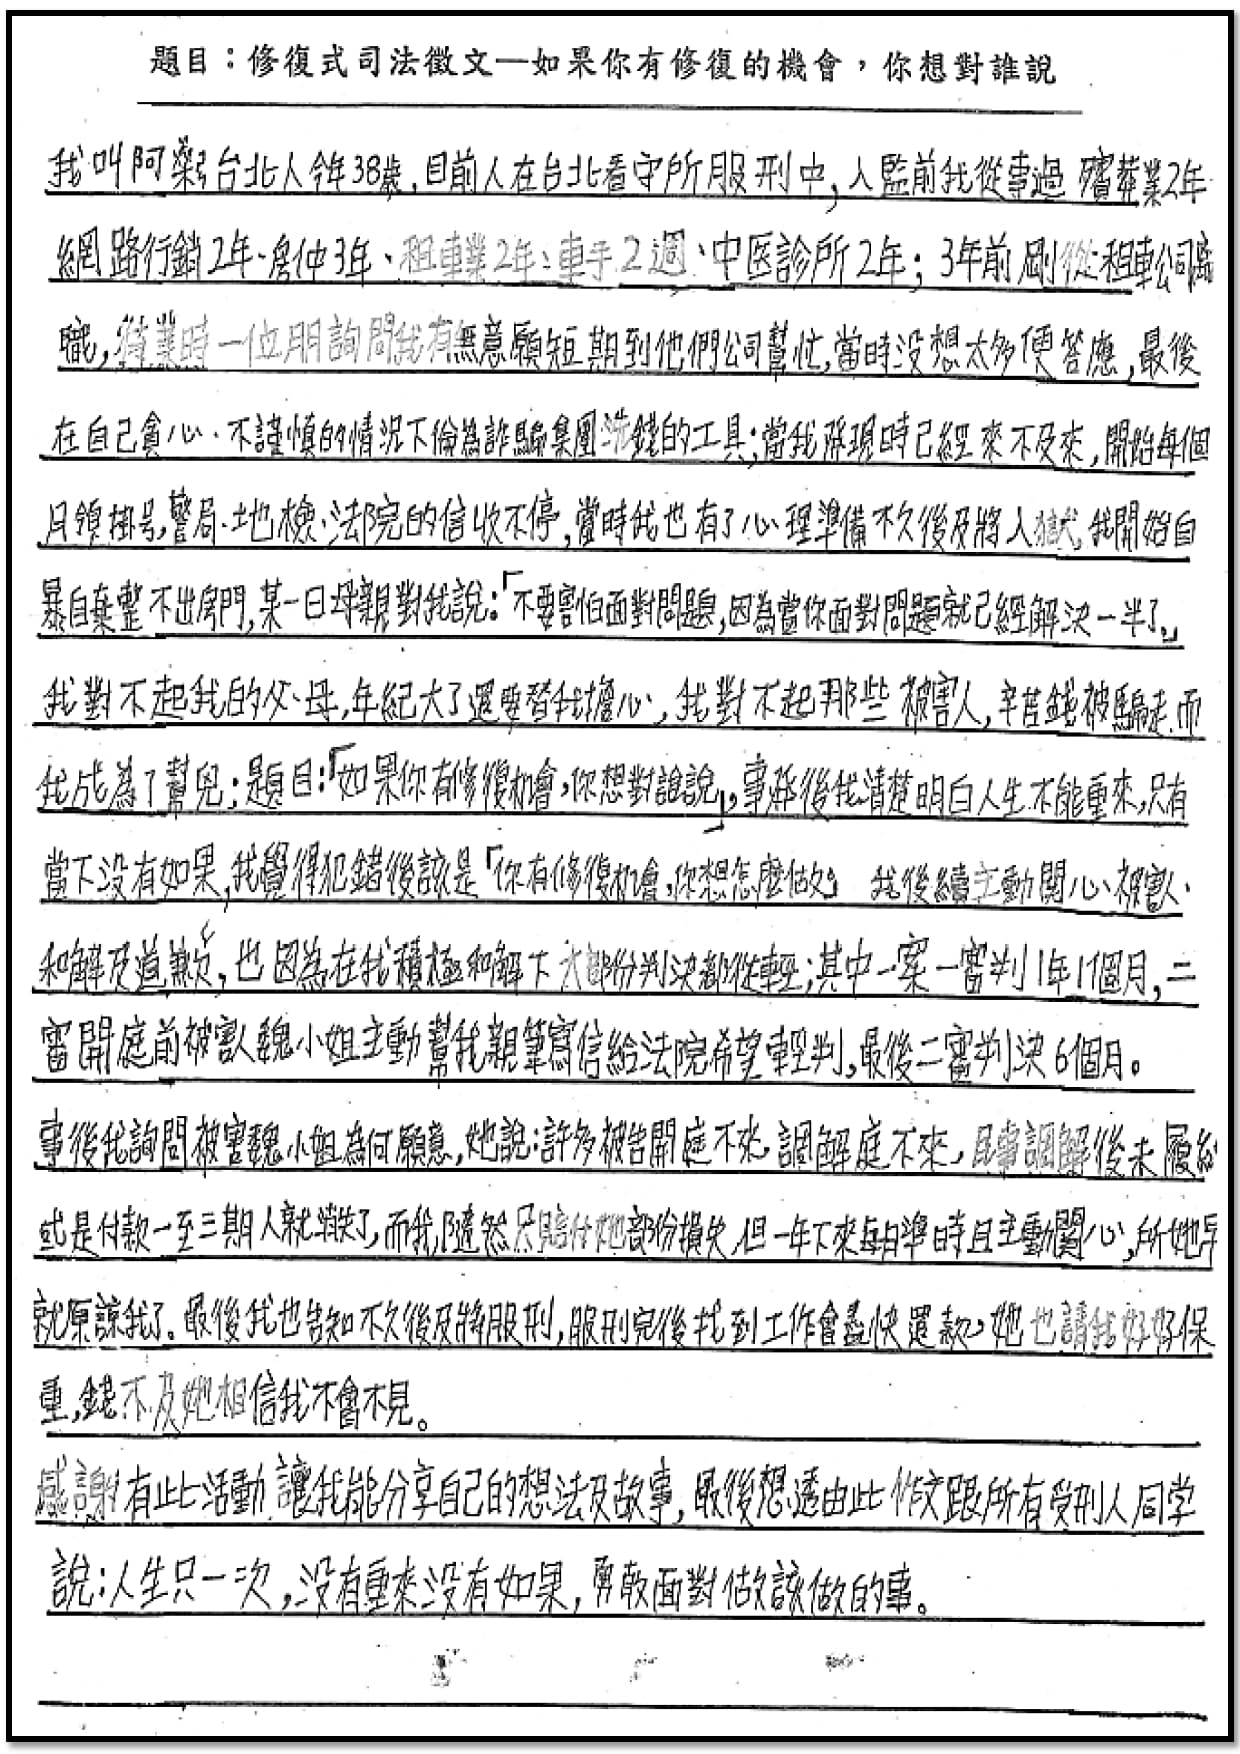 題目：修復式司法徵文—如果你有修復的機會，你想對誰說
我叫阿樂台北人今年38歲，目前人在台北看守所服刑中，入監前我從事過 殯葬業2年
網路行銷2年、房仲3年、租車業2年、車手2週、中医診所2年；3年前剛從租車公司離
職，待業時一位朋詢問我有無意願短期到他們公司幫忙，當時没想太多便答應，最後
在自己貪心、不謹慎的情況下倫為詐騙集團洗錢的工具；當我發現時已經來不及來，開始每個
月領掛号，警局、地檢、法院的信收不停，當時我也有了心理準備不久後及將入獄，我開始自
暴自棄整不出房門，某一日母親對我說：「不要害怕面對問題，因為當你面對問題就已經解決一半了。」
我對不起我的父、母，年紀大了還要替我擔心，我對不起那些被害人，辛苦錢被騙走，而
我成為了幫兇；題目：「如果你有修復机會，你想對誰說」，事發後我清楚明白人生不能重來，只有
當下没有如果，我覺得犯錯後該是「你有修復机會，你想怎麼做」 我後續主動関心、被害人、
和解及道歉，也因為在我積極和解下大部份判決都從輕；其中一案一審判1年11個月，二
審開庭前被害人魏小姐主動幫我親筆寫信給法院希望輕判，最後二審判決6個月。
事後我詢問被害魏小姐為何願意，她說：許多被告開庭不來、調解庭不來，且事調解後未履約
或是付款一至三期人就消失了，而我隨然只賠付她部份損失，但一年下來每日準時且主動關心，所她早
就原諒我了。最後我也告知不久後及將服刑，服刑完後找到工作會盡快還款，她也請我好好保
重，錢不及她相信我不會不見。
感謝有此活動讓我能分享自己的想法及故事，最後想透由此作文跟所有受刑人同学
說：人生只一次，没有重來没有如果，勇敢面對做該做的事。